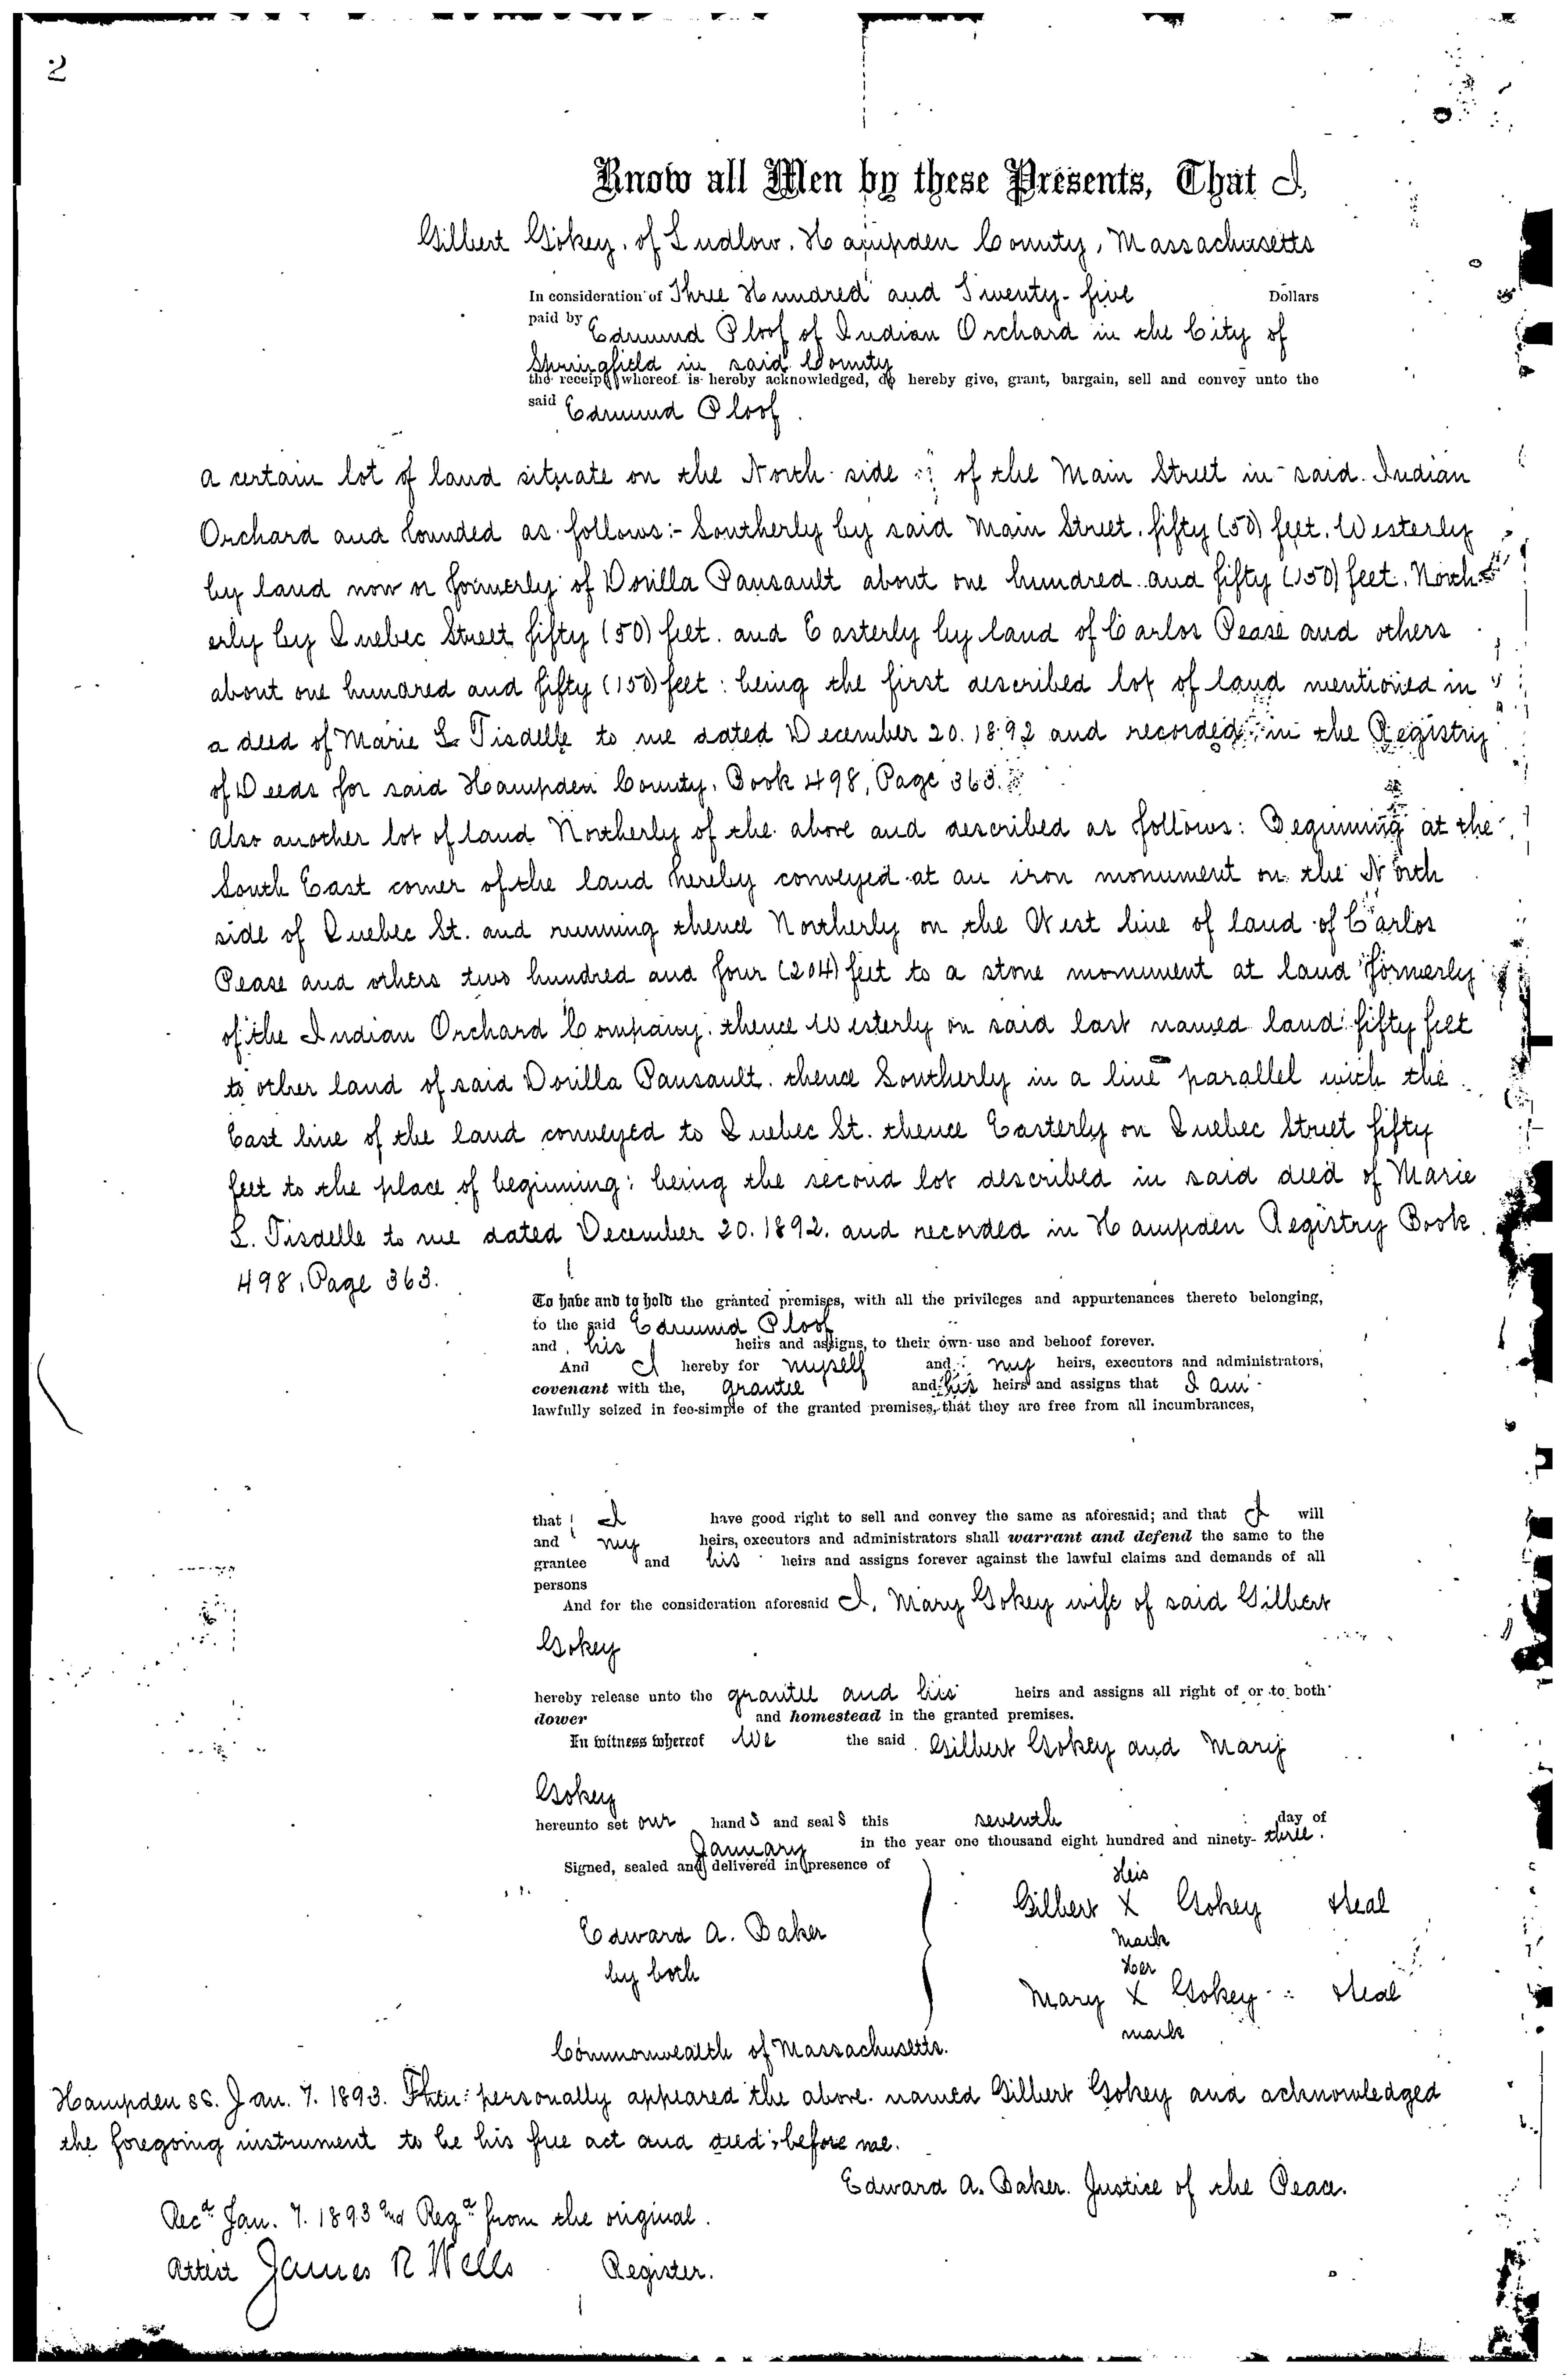 2
Know all Men by these Presents, That I,
Gilbert Gokey, of Ludlow, Hampden County, Massachusetts
In consideration of Three Hundred and Twenty-five Dollars
paid by Edmund Ploof of Indian Orchard in the City of
Springfield in said County
the receipt whereof is hereby acknowledged, do hereby give, grant, bargain, sell and convey unto the
said Edmund Ploof
a certain lot of land situate on the North side of the Main Street in said Indian
Orchard and bounded as follows:- Southerly by said Main Street, fifty (50) feet, Westerly
by land now or formerly of Dorilla Pausault about one hundred and fifty (150) feet, North-
erly by Quebec Street fifty (50) feet, and Easterly by land of Carlos Pease and others
about one hundred and fifty (150) feet: being the first described lot of land mentioned in
a deed of Marie L. Tisdelle to me dated December 20. 1892 and recorded in the Registry
of Deeds for said Hampden County, Book 498, Page 363.
Also another lot of land Northerly of the above and described as follows: Beginning at the
South East corner of the land hereby conveyed at an iron monument on the North
side of Quebec St. and running thence Northerly on the West line of land of Carlos
Pease and others two hundred and four (204) feet to a stone monument at land formerly
of the Indian Orchard Company, thence Westerly on said last named land fifty feet
to other land of said Dorilla Pausault, thence Southerly in a line parallel with the
East line of the land conveyed to Quebec St. thence Easterly on Quebec Street fifty
feet to the place of beginning: being the second lot described in said deed of Marie
L. Tisdelle to me dated December 20. 1892. and recorded in Hampden Registry Book
498, Page 363.
To have and to hold the granted premises, with all the privileges and appurtenances thereto belonging,
to the said Edmund Ploof
and his heirs and assigns, to their own use and behoof forever.
And I hereby for myself and my heirs, executors and administrators,
covenant with the, grantee and his heirs and assigns that I am
lawfully seized in fee-simple of the granted premises, that they are free from all incumbrances,
that I have good right to sell and convey the same as aforesaid; and that I will
and my heirs, executors and administrators shall warrant and defend the same to the
grantee and his heirs and assigns forever against the lawful claims and demands of all
persons
And for the consideration aforesaid I, Mary Gokey wife of said Gilbert
Gokey
hereby release unto the grantee and his heirs and assigns all right of or to both
dower and homestead in the granted premises.
In witness whereof We the said Gilbert Gokey and Mary
Gokey
hereunto set our hands and seals this seventh day of
January in the year one thousand eight hundred and ninety-three.
Signed, sealed and delivered in presence of
His
Gilbert X Gokey Seal
mark
Edward A. Baker
by both
Her
Mary X Gokey Seal
mark
Commonwealth of Massachusetts.
Hampden ss. Jan. 7. 1893. Then personally appeared the above named Gilbert Gokey and acknowledged
the foregoing instrument to be his free act and deed, before me.
Edward A. Baker. Justice of the Peace.
Recd Jan. 7. 1893 and Regd from the original.
Attest James R Wells Register.